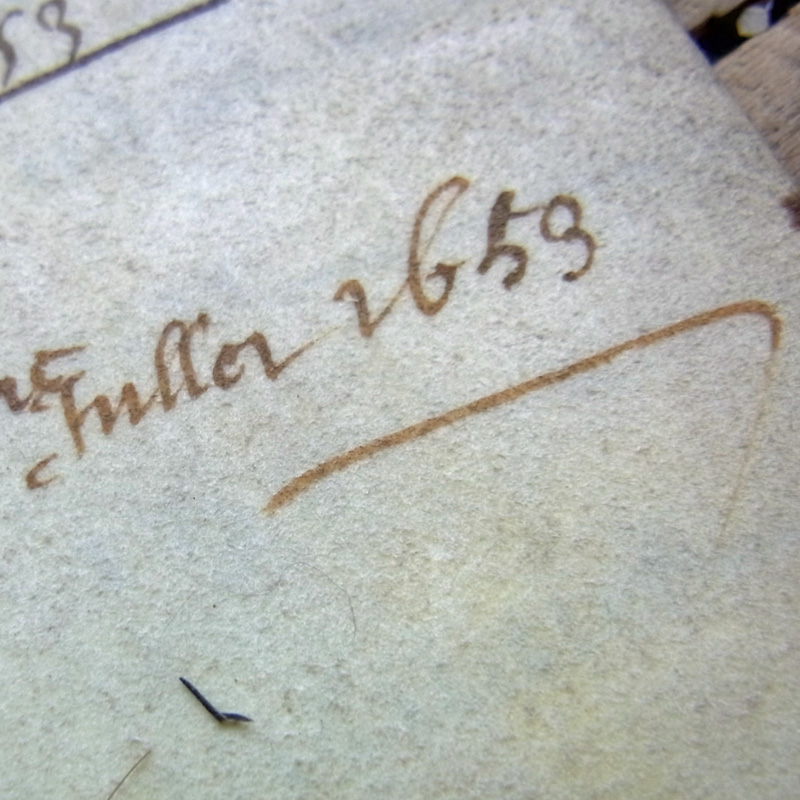 53
Fuller 1653